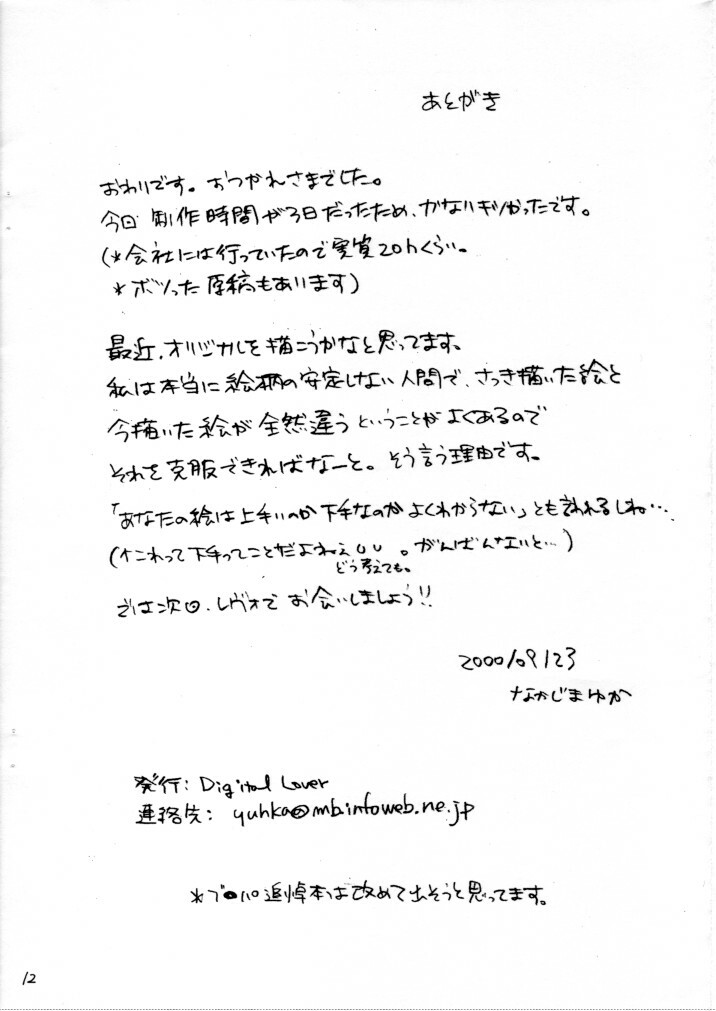 あとがき
おわりです。おつかれさまでした。
今回 制作時間が3日だったため、かなりギリかったです。
(*会社には行っていたので実質20hくらい。
*ボツった原稿もあります)
最近、オリジナルを描こうかなと思ってます。
私は本当に絵柄の安定しない人間で、さっき描いた絵と
今描いた絵が全然違うということがよくあるので
それを克服できればなーと。そう言う理由です。
「あなたの絵は上手いのか下手なのかよくわからない」とも言われるしね…
(↑これって下手ってことだよねぇUU 。がんばんないと…)
どう考えても。
では次回、レヴォでお会いしましょう!!
2000/09/23
なかじまゆか
発行: Digital Lover
連絡先: yuhka@mb.infoweb.ne.jp
*プロパ追悼本は改めて出そうと思ってます。
12